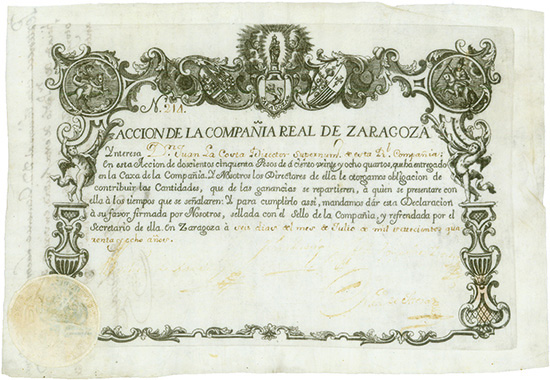 N.
ACCION DE LA COMPAÑIA REAL DE ZARAGOZA
Ynteresa Juan La Costa Director de esta Rl. Compañia:
En esta Accion de doscientos cinquenta Pesos de à ciento veinte y ocho quartos, que hà entregado
en la Caxa de la Compañia. Y Nosotros los Directores de ella le otorgamos obligacion de
contribuir las Cantidades, que de las ganancias se repartieren, à quien se presentare con
ella à los tiempos que se señalaren: Y para cumplirlo assi, mandamos dár esta Declaracion
à su favor, firmada por Nosotros, sellada con el Sello de la Compañia, y refrendada por el
Secretario de ella. En Zaragoza à seis dias del mes de Julio de mil setecientos
y ocho años.